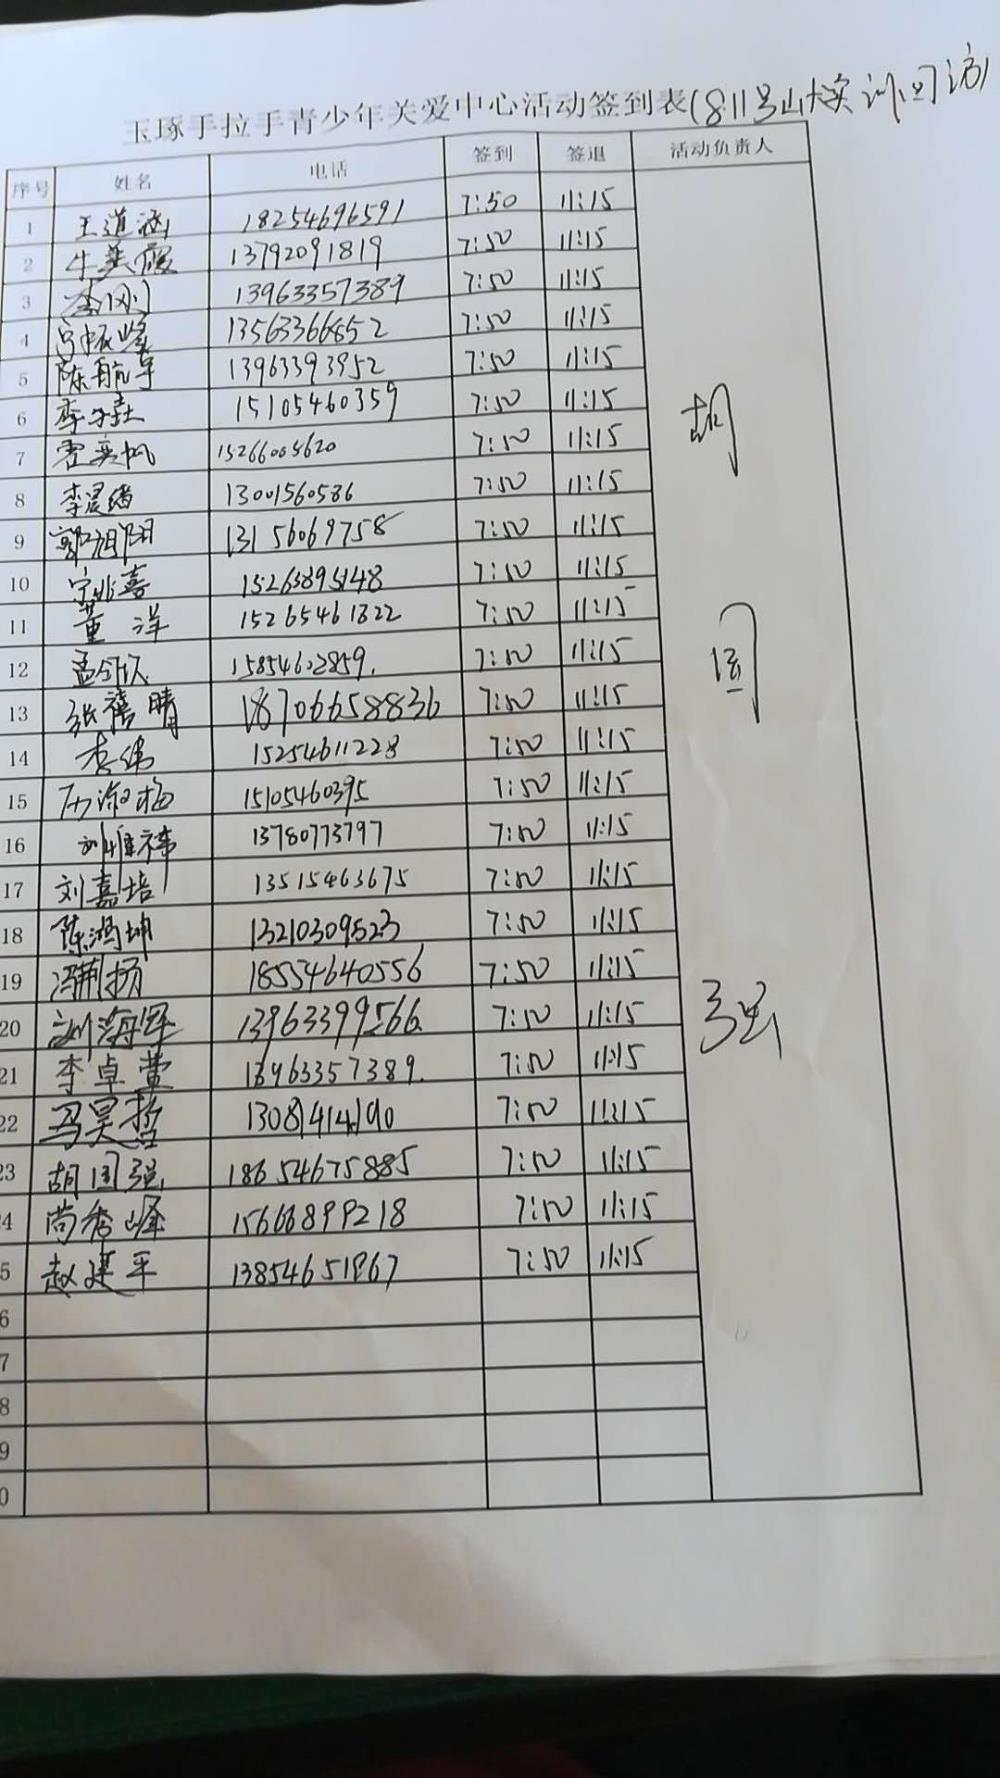 玉琢手拉手青少年关爱中心活动签到表(8.11号
序号 姓名 电话 签到 签退 活动负责人
1 王道涵 18254696591 7:50 11:15
2 牛美霞 13792091819 7:50 11:15
3 李刚 13963357389 7:50 11:15
4 13563366852 7:50 11:15
5 陈航宇 13963393952 7:50 11:15
6 李 15105460359 7:50 11:15
7 15266005620 7:50 11:15
8 李晨绪 13001560586 7:50 11:15
9 郭旭阳 13156069758 7:50 11:15
10 宁兆喜 15263895148 7:50 11:15
11 董洋 15265461322 7:50 11:15
12 孟 15854602859. 7:50 11:15
13 张禧晴 18706658836 7:50 11:15
14 李伟 15254611228 7:50 11:15
15 15105460395 7:50 11:15
16 刘雅祎 13780773797 7:50 11:15
17 刘嘉培 13515463675 7:50 11:15
18 陈鸿坤 13210309523 7:50 11:15
19 冯荆扬 18554640556 7:50 11:15
20 刘海军 13963399566. 7:50 11:15
21 李卓萱 13963357389. 7:50 11:15
22 冯昊哲 7:50 11:15
3 胡国强 18654675885 7:50 11:15
4 尚秀峰 15666899218 7:50 11:15
5 赵建平 13854651867 7:50 11:15
6
7
8
9
0
胡
国
强